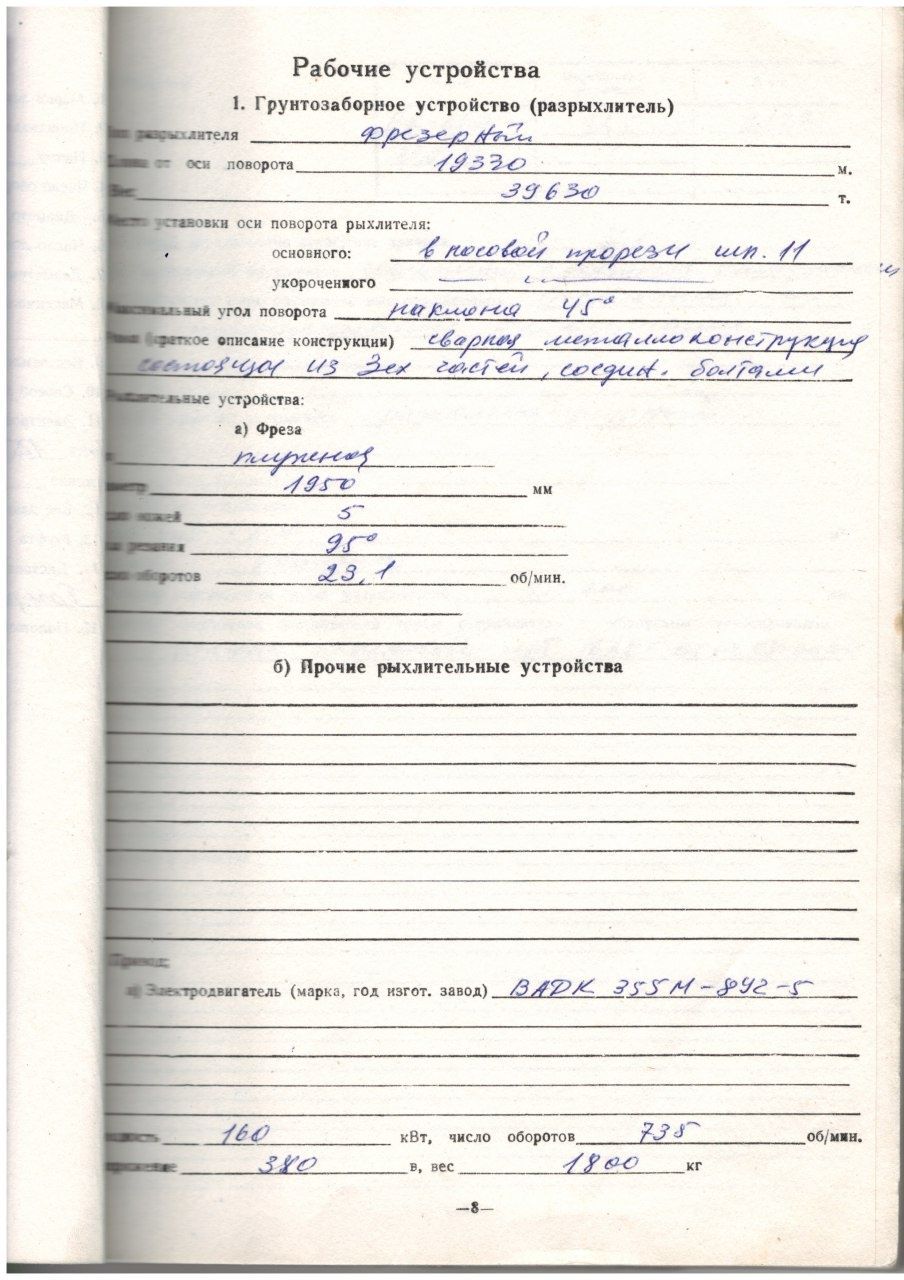 Рабочие устройства
1. Грунтозаборное устройство (разрыхлитель)
разрыхлителя фрезерный
от оси поворота 19330 м.
Вес 39630 т.
установки оси поворота рыхлителя:
основного: в носовой прорези шп. 11
укороченного —
Максимальный угол поворота наклона 45°
(краткое описание конструкции) сварная металлоконструкция
состоящая из 3ех частей, соедин. болтами
Рыхлительные устройства:
а) Фреза
1950 мм
ножей 5
резания 95°
оборотов 23,1 об/мин.
б) Прочие рыхлительные устройства
Привод:
а) Электродвигатель (марка, год изгот. завод) ВАДК 355М-8У2-5
160 кВт, число оборотов 735 об/мин.
380 в, вес 1800 кг
—8—